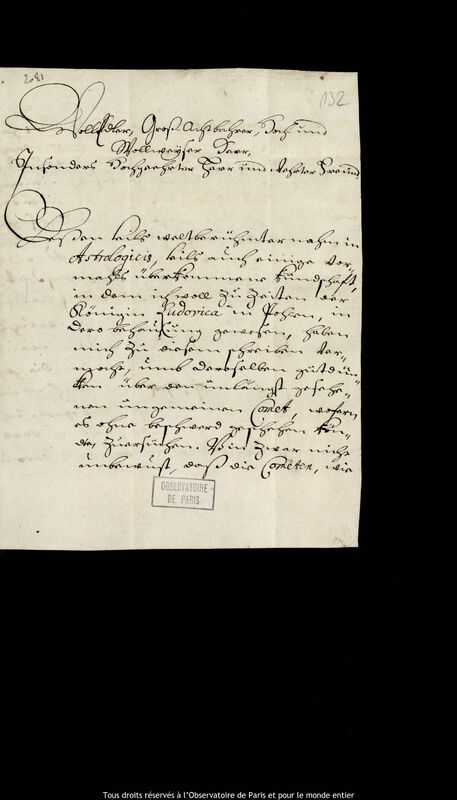 2081
132
WollEdler, Groß Achtbahrer, Hoch und
Wollweyser Herr,
Insonders Hochgeehrter Herr und wehrter Freund
Deßen teils weltberühmter nahm in
Astrologicis, teils auch einige vor-
mahls überkommene kundschafft,
in dem ich woll zu Zeiten der
Königin Ludovica in Pohlen, in
dero behausung gewesen, haben
mich zu diesem schreiben ver-
mocht, umb deroselben gutdün-
cken über den unlängst gesehe-
nen ungemeinen Comet, wofern
es ohne beschwerd geschehen kön-
te, zuersuchen. Bin zwar nicht
unbewust, daß die Cometen, wie
OBSERVATOIRE
DE PARIS
Tous droits réservés à l'Observatoire de Paris et pour le monde entier